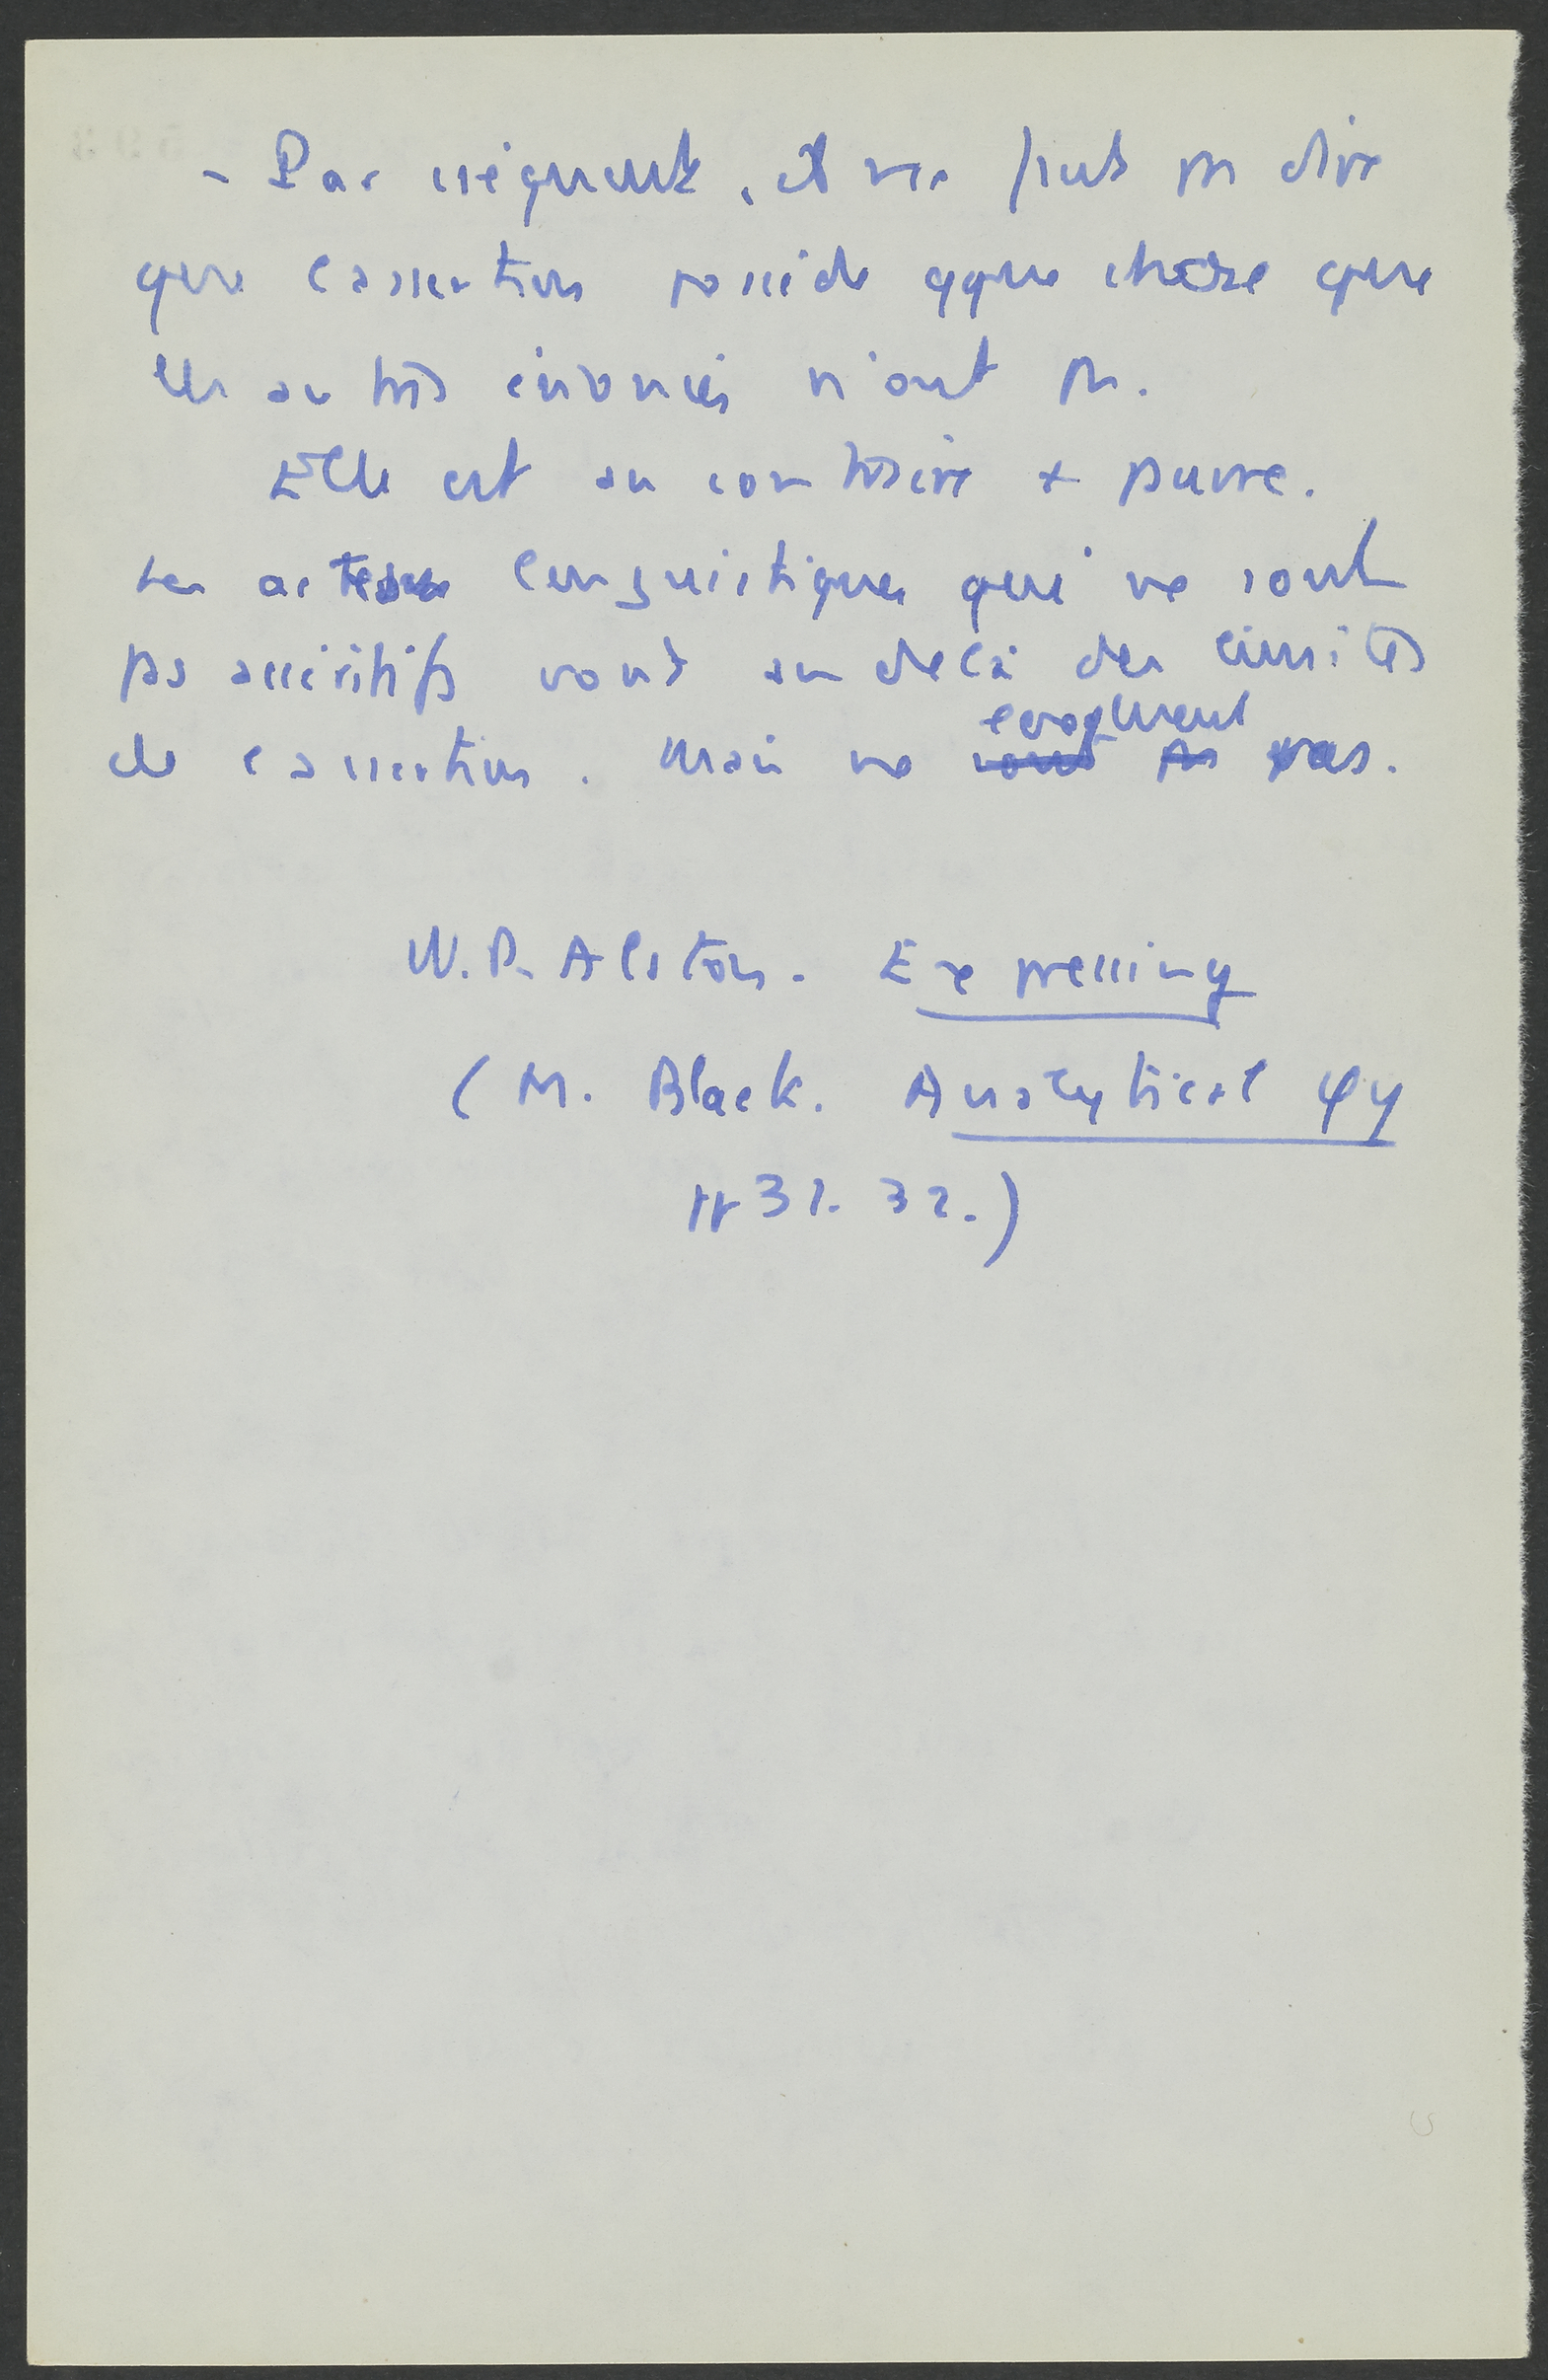 - Par cséquent, il ne faut pas dire
que l'assertion possède qque chose que
les autres énoncés n'ont pas.
Elle est au contraire + pauvre.
Les actes linguistiques qui ne sont
pas assertifs vont au delà des limites
de l'assertion. Mais ne pas.
W.P. Alston. Expressing
(M. Black. Analytical φy
pp 31. 32.)